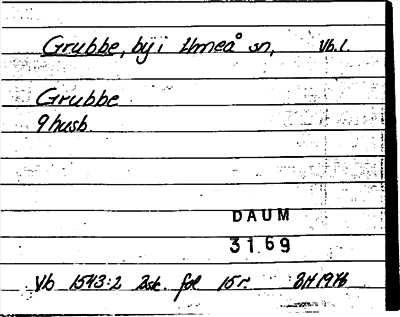 Grubbe, by i Umeå sn, Vb.l.
Grubbe
9 husb.
DAUM
3169
Vb 1543:2 Bsk. fol 15r. BH 1976